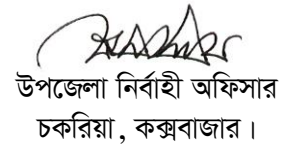 উপজেলা নির্বাহী অফিসার
চকরিয়া, কক্সবাজার।